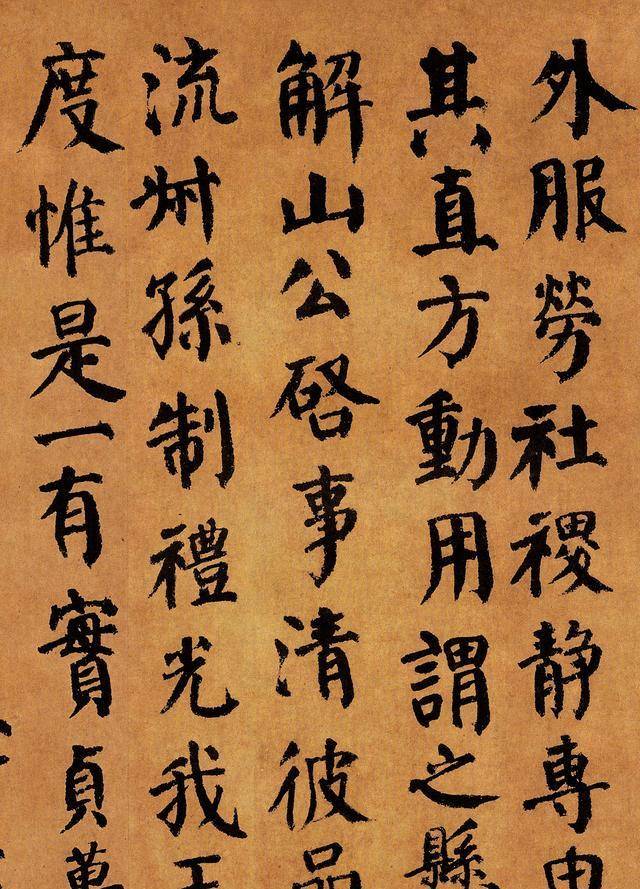 外服勞社稷静專由
其直方動用謂之縣
解山公啓事清彼品
流叔孫制禮光我王
度惟是一有實貞萬